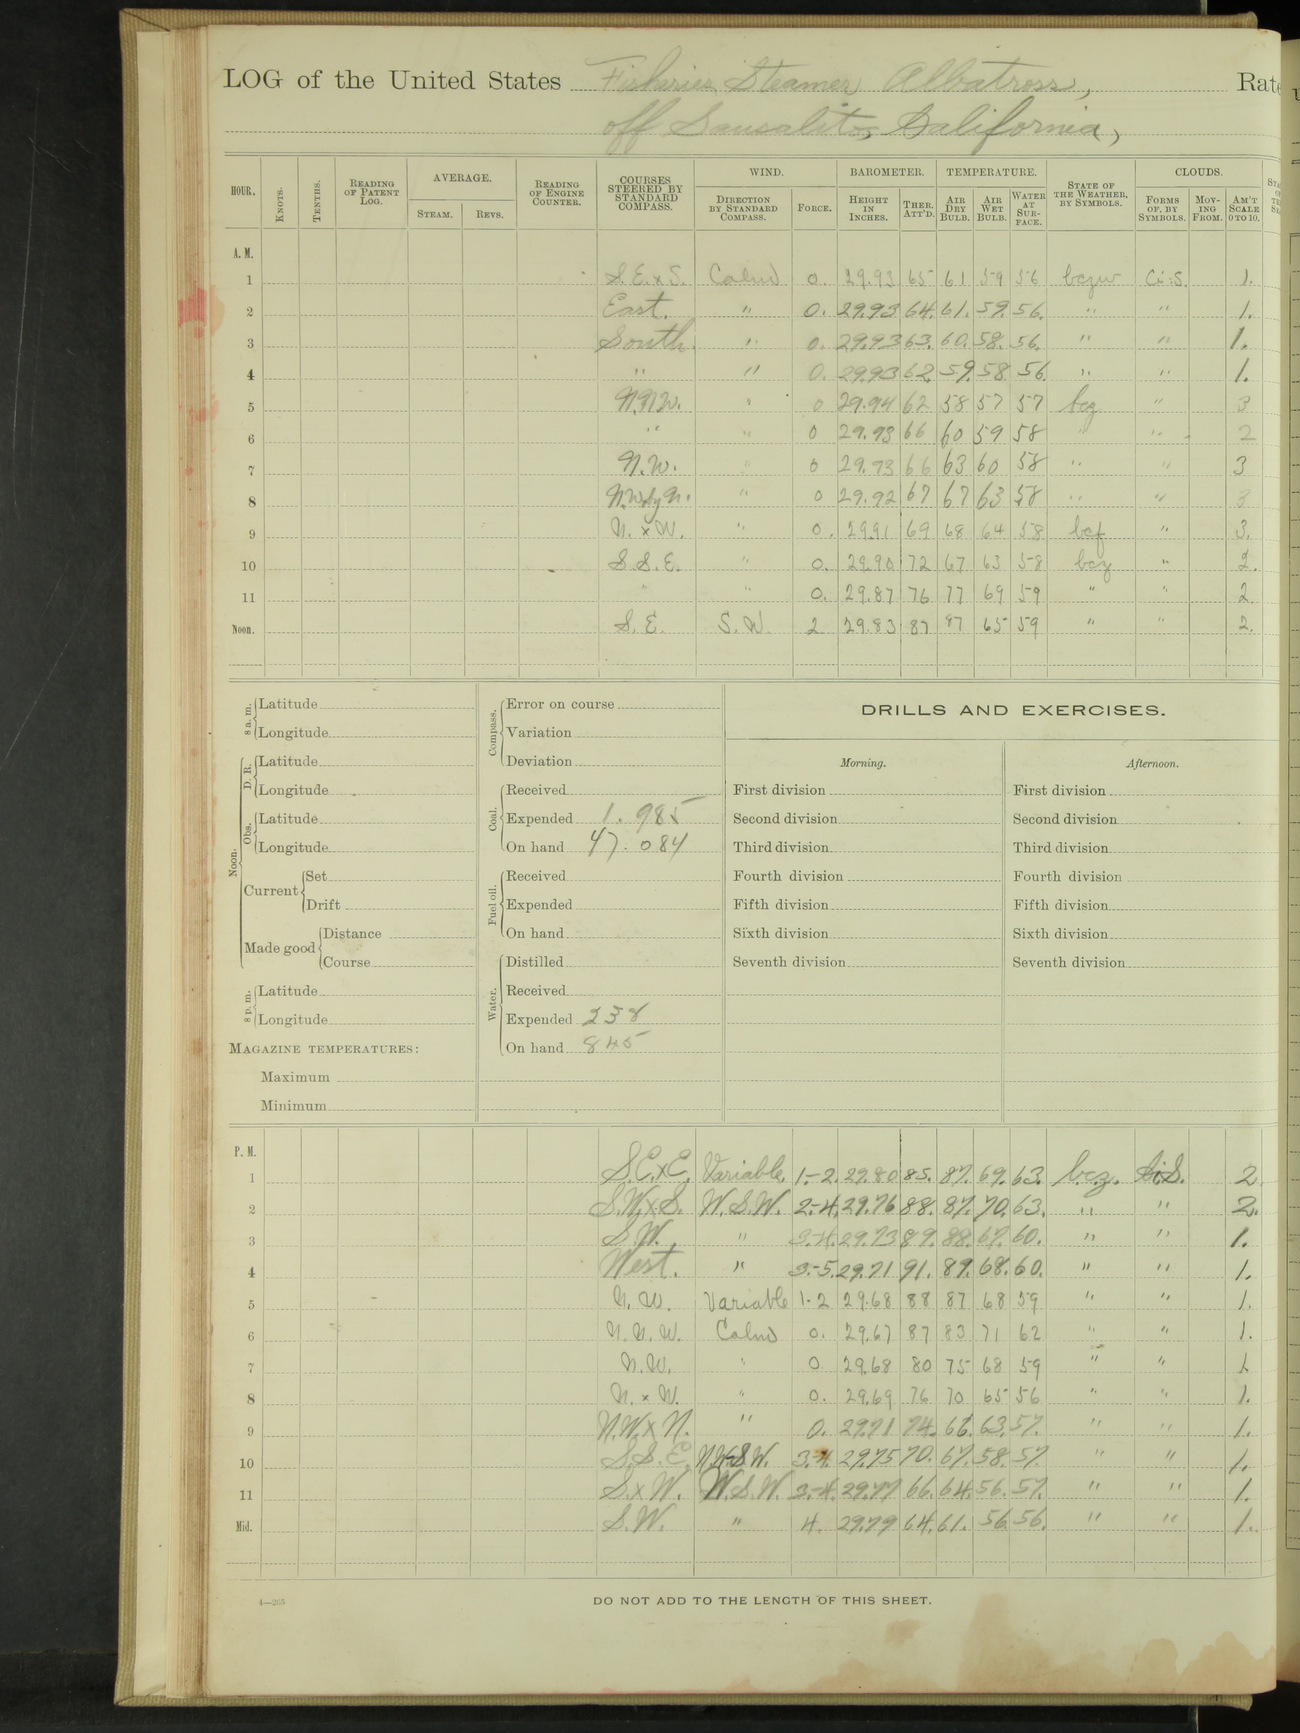 LOG of the United States Fisheries Steamer Albatross, Rate
off Sausalito, California,
HOUR. KNOTS. TENTHS. READING OF PATENT LOG. AVERAGE. STEAM. REVS. READING OF ENGINE COUNTER. COURSES STEERED BY STANDARD COMPASS. WIND. DIRECTION BY STANDARD COMPASS. FORCE. BAROMETER. HEIGHT IN INCHES. THER. ATT'D. TEMPERATURE. AIR DRY BULB. AIR WET BULB. WATER AT SURFACE. STATE OF THE WEATHER, BY SYMBOLS. CLOUDS. FORMS OF, BY SYMBOLS. MOVING FROM. AM'T SCALE 0 TO 10.
A. M.
1 S.E.xS. Calm 0. 29.93 65 61 59 56 bczw Ci:S. 1.
2 East. " 0. 29.93 64. 61. 59. 56. " " 1.
3 South. " 0. 29.93 63. 60. 58. 56. " " 1.
4 " " 0. 29.93 62. 59. 58 56. " " 1.
5 N.N.W. " 0 29.94 62 58 57 57 bcz " 3
6 " " 0 29.93 66 60 59 58 " " 2
7 N.W. " 0 29.93 66 63 60 58 " " 3
8 N.W.by N. " 0 29.92 67 67 63 58 " " 3
9 N. x W. " 0. 29.91 69 68 64 58 bcf " 3.
10 S.S.E. " 0. 29.90 72 67 63 58 bcz " 2.
11 " " 0. 29.87 76 77 69 59 " " 2.
Noon. S.E. S.W. 2 29.83 87 87 65 59 " " 2.
8 a. m. Latitude
Longitude
Noon. D. R. Latitude
Longitude
Obs. Latitude
Longitude
Current Set
Drift
Made good Distance
Course
8 p. m. Latitude
Longitude
MAGAZINE TEMPERATURES:
Maximum
Minimum
Compass. Error on course
Variation
Deviation
Coal. Received
Expended 1.985
On hand 47.084
Fuel oil. Received
Expended
On hand
Water. Distilled
Received
Expended 238
On hand 845
DRILLS AND EXERCISES.
Morning. Afternoon.
First division First division
Second division Second division
Third division Third division
Fourth division Fourth division
Fifth division Fifth division
Sixth division Sixth division
Seventh division Seventh division
P. M.
1 S.E.xE. Variable. 1-2. 29.80 85. 87. 69. 63. b.c.z. Ci.S. 2
2 S.W.xS. W.S.W. 2-4. 29.76 88. 87. 70. 63. " " 2.
3 S.W. " 3-4. 29.73 89. 88. 67. 60. " " 1.
4 West. " 3-5. 29.71 91. 89. 68. 60. " " 1.
5 N.W. Variable 1-2 29.68 88 87 68 59 " " 1.
6 N.N.W. Calm 0. 29.67 87 83 71 62 " " 1.
7 N.W. " 0 29.68 80 75 68 59 " " 1.
8 N. x W. " 0. 29.69 76 70 65 56 " " 1.
9 N.W.xN. " 0. 29.71 74. 66. 63. 57. " " 1.
10 S.S.E. W.S.W. 3-4. 29.75 70. 67. 58. 57. " " 1.
11 S.xW. W.S.W. 3-4. 29.77 66. 64. 56. 57. " " 1.
Mid. S.W. " 4. 29.79 64. 61. 56. 56. " " 1.
4—265 DO NOT ADD TO THE LENGTH OF THIS SHEET.